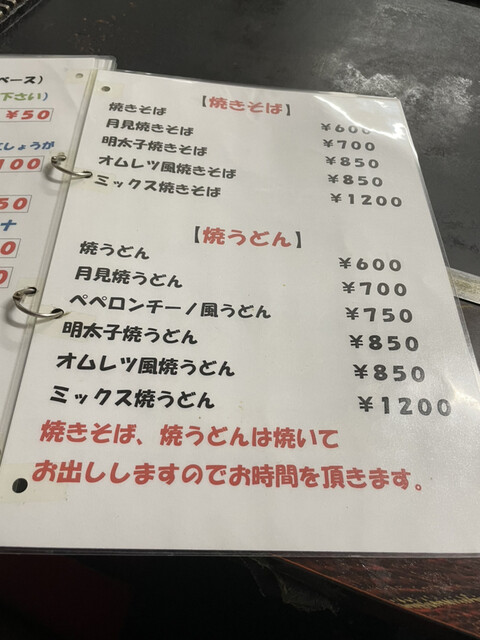 ベース)
下さい)
¥50
しょうが
100
50
+
0
0
【焼きそば】
焼きそば ¥600
月見焼きそば ¥700
明太子焼きそば ¥850
オムレツ風焼きそば ¥850
ミックス焼きそば ¥1200
【焼うどん】
焼うどん ¥600
月見焼うどん ¥700
ペペロンチーノ風うどん ¥750
明太子焼うどん ¥850
オムレツ風焼うどん ¥850
ミックス焼うどん ¥1200
焼きそば、焼うどんは焼いて
お出ししますのでお時間を頂きます。